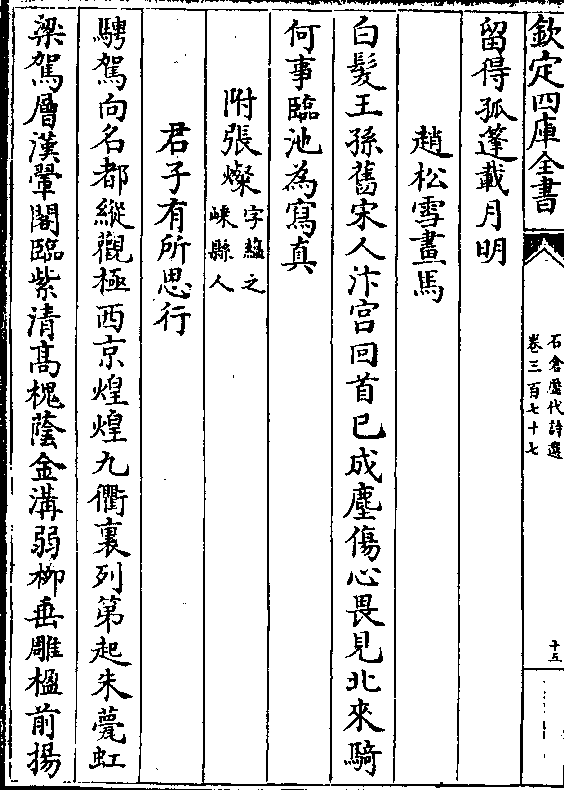 欽定四庫全書
石倉歷代詩選
卷三百七十七
十五
留得孤篷載月明
趙松雪畫馬
白髮王孫舊宋人汴宮回首已成塵傷心畏見北來騎
何事臨池為寫真
附張燦字蘊之
嵊縣人
君子有所思行
騁駕向名都縱觀極西京煌煌九衢裏列第起朱甍虹
梁駕層漢翬閣臨紫清高槐蔭金溝弱柳垂雕楹前揚